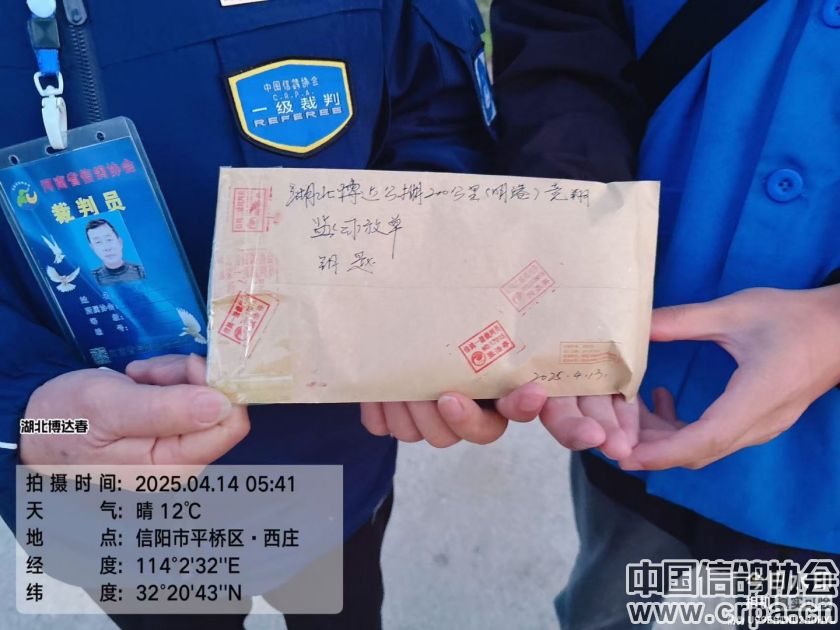 中国信鸽协会
C.R.P.A.
一级裁判
REFEREE
河南省信鸽协会
裁判员
湖北博达公棚200公里(明港)竞翔
监放单
钥匙
2025.4.13.
湖北博达春
拍摄时间: 2025.04.14 05:41
天 气: 晴 12℃
地 点: 信阳市平桥区·西庄
经 度: 114°2'32"E
纬 度: 32°20'43"N
中国信鸽协会
www.crpa.cn